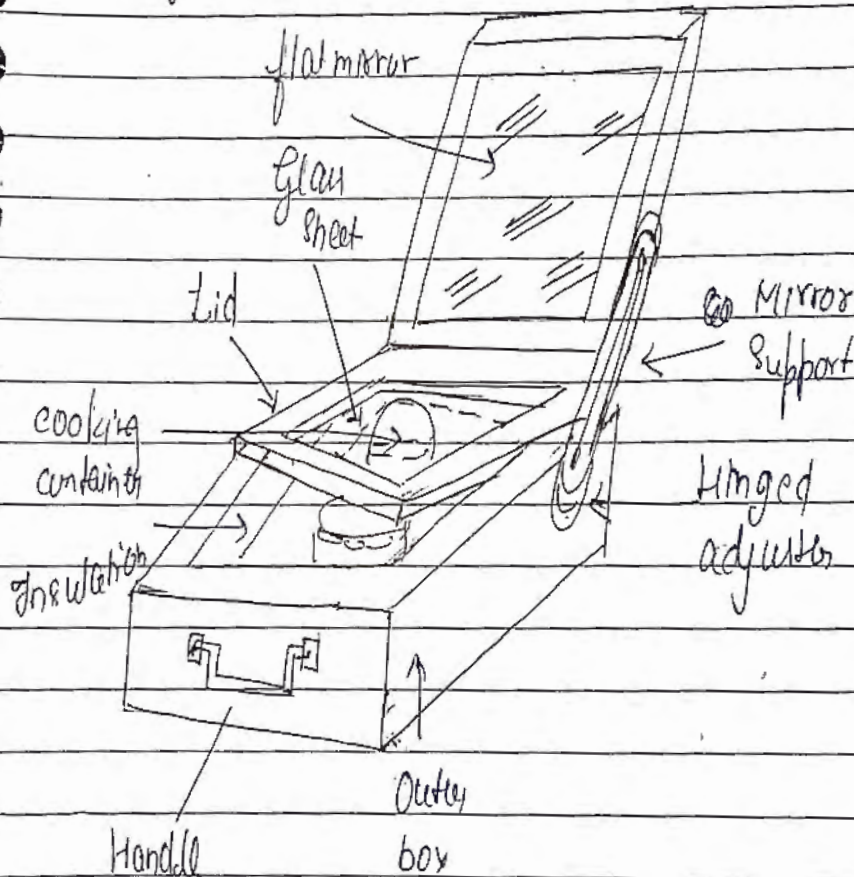 flat mirror
Glass
sheet
Lid
Mirror
Support
cooking
container
Hinged
adjuster
Insulation
Outer
box
Handle